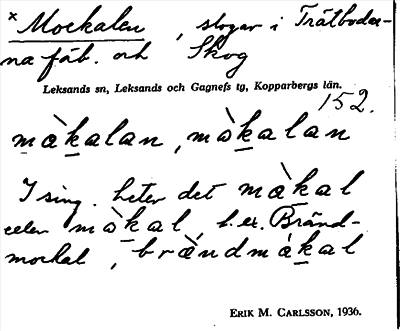 × Mockalen, slogar i Trätboder-
na fäb. och Skog
Leksands sn, Leksands och Gagnefs tg, Kopparbergs län.
152.
mòkalan, mòkalan
I sing. heter det mòkal
eller mòkal, t. ex. Bränd-
mockal, brændmòkal
ERIK M. CARLSSON, 1936.